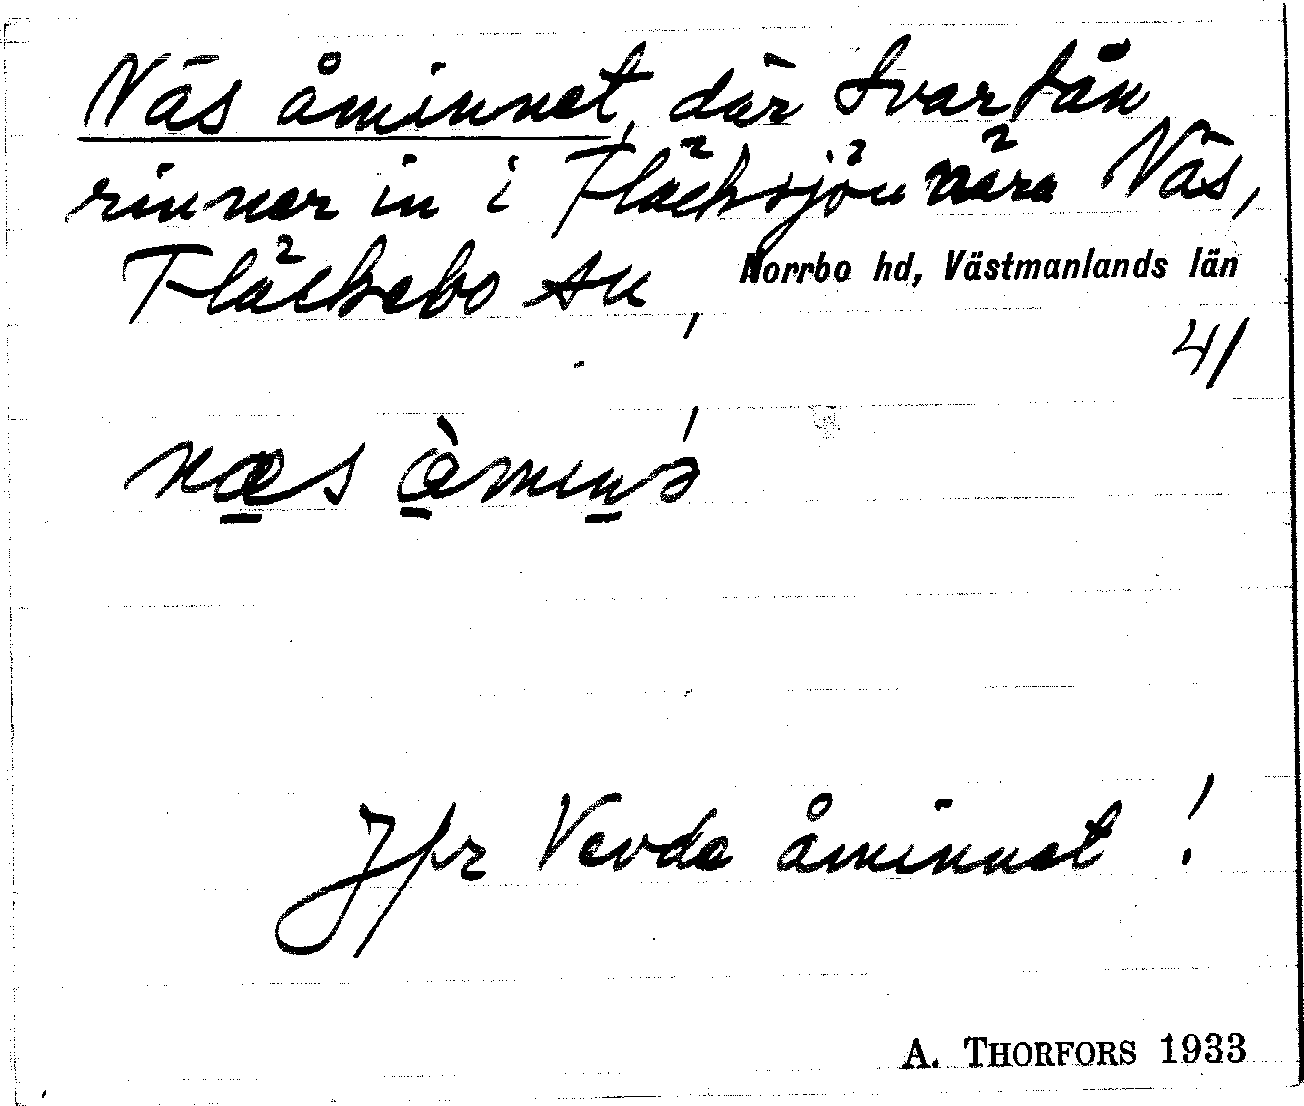 Näs åminnet, där Svartån
rinner in i Fläcksjön nära Näs,
Fläckebo sn, Norrbo hd, Västmanlands län
41
Jfr Vevde åminnet!
A. THORFORS 1933